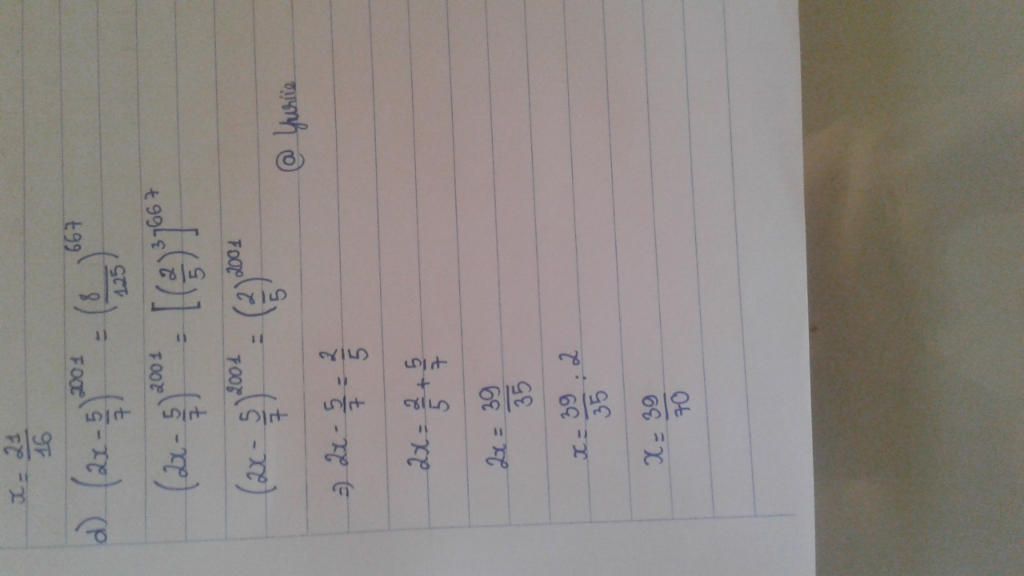 x = 21/16
d) (2x - 5/7)^2001 = (8/125)^667
(2x - 5/7)^2001 = [(2/5)^3]^667
(2x - 5/7)^2001 = (2/5)^2001
@ Yuriie
=) 2x - 5/7 = 2/5
2x = 2/5 + 5/7
2x = 39/35
x = 39/35 : 2
x = 39/70